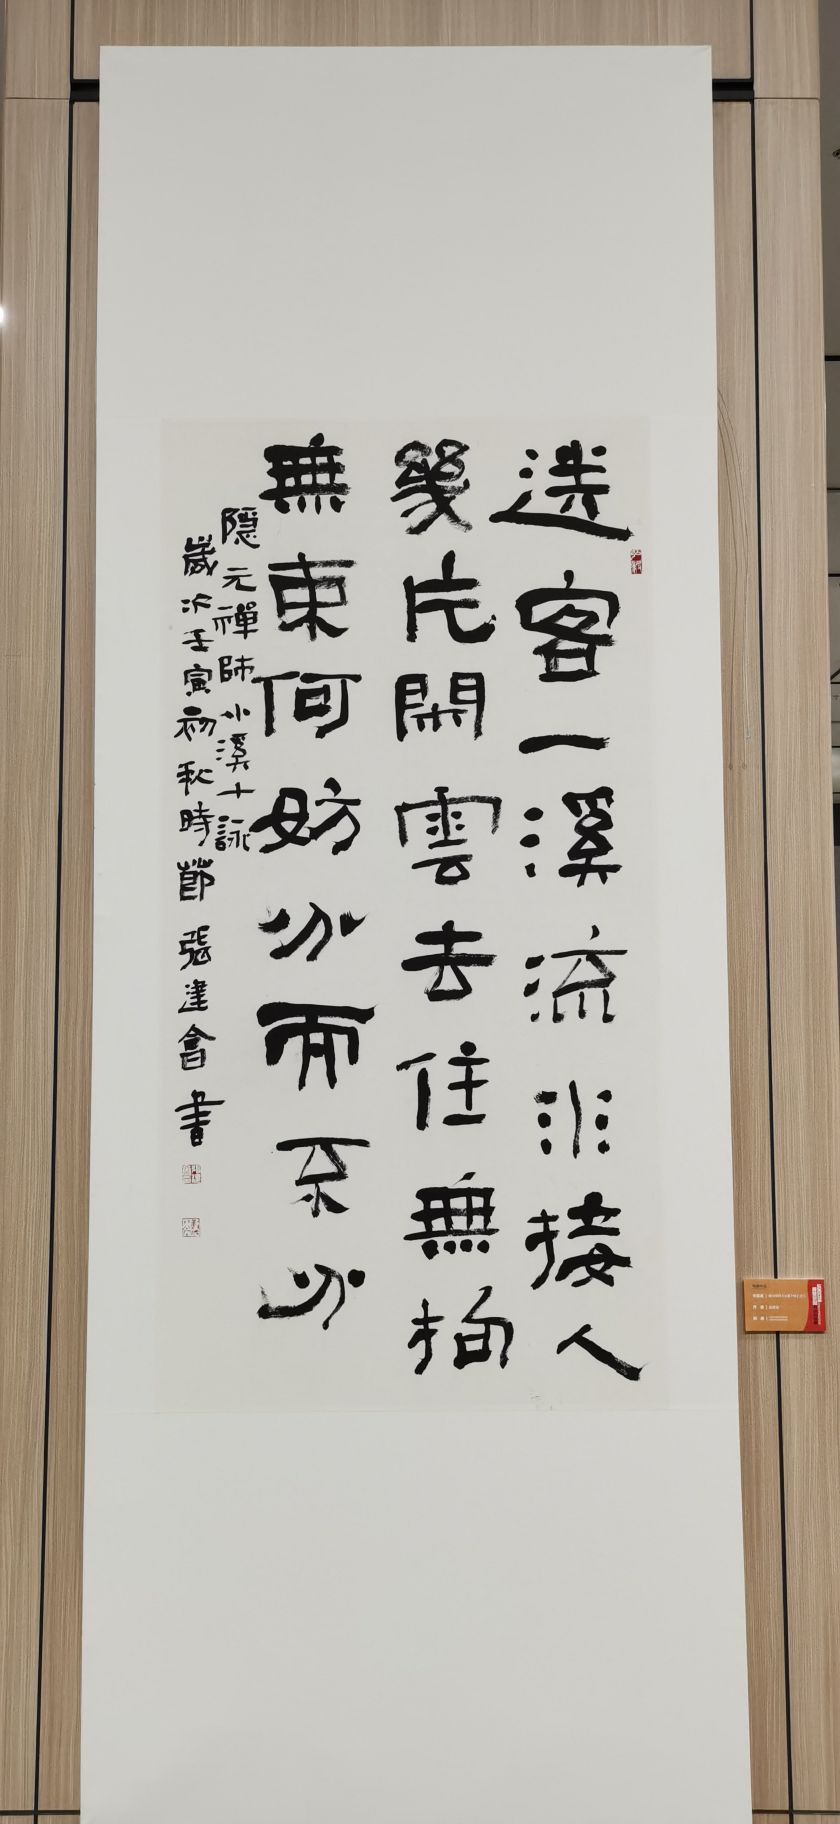 送客一溪流水接人
幾片閑雲去住無拘
無束何妨分而不分
隱元禪師小溪十詠
歲次壬寅初秋時節張建會書